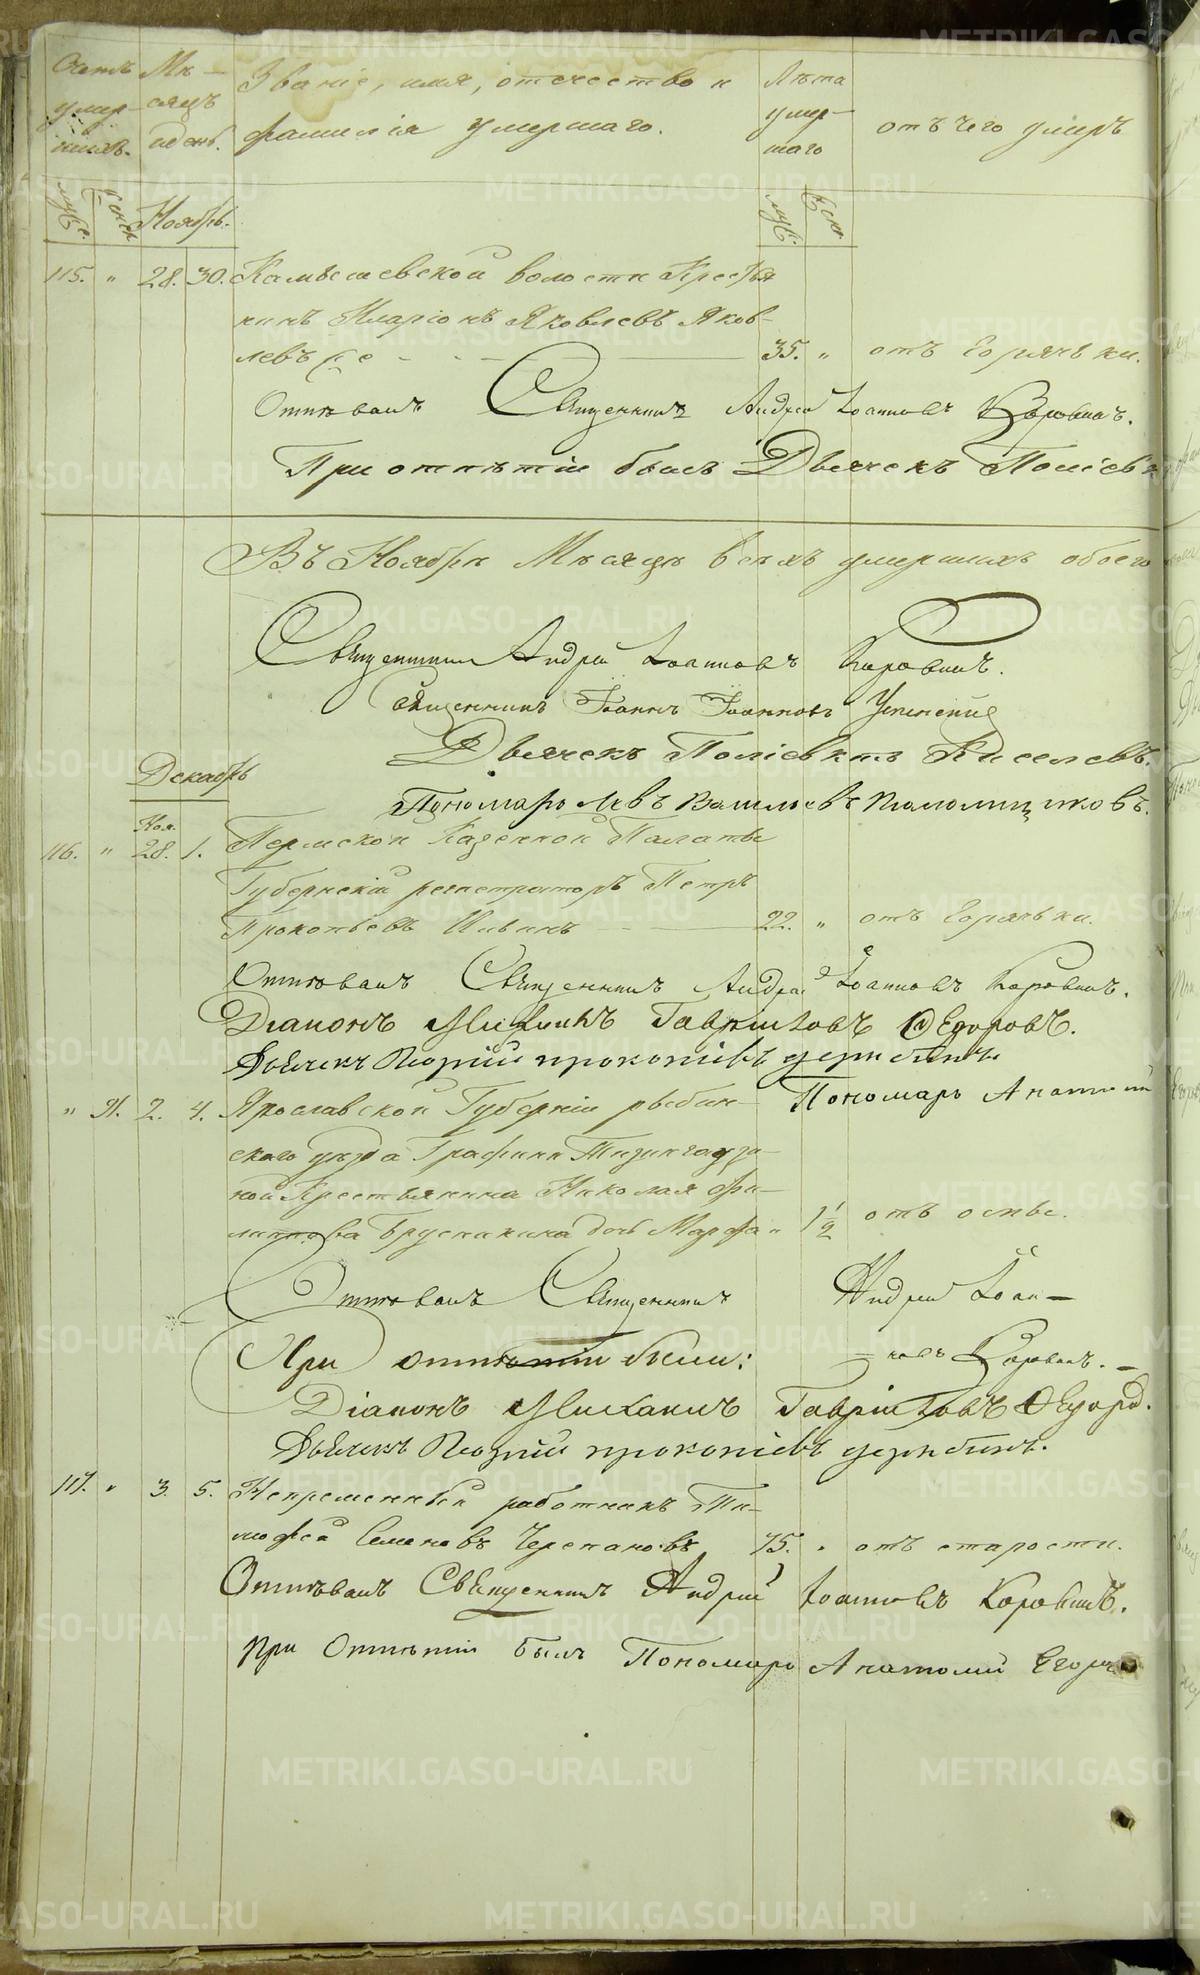 Счетъ умер-шихъ.
Мѣ-сяцъ и день.
Званіе, имя, отечество и
фамилія умершаго.
Лѣта умер-шаго
отъ чего умеръ
муж.
женск.
Ноябрь.
муж.
женс.
115. " 28. 30. Камышевской волости Крестья
нинъ Иларіонъ Яковлевъ Яков-
левъ же 35. " отъ горячьки.
Отпѣвалъ Священникъ Андрей Іоанновъ Коровинъ.
При отпѣтіи былъ Дьячекъ Поліев
Въ Ноябрѣ Мѣсяцѣ всѣхъ умершихъ обоего
Священникъ Андрей Іоанновъ Коровинъ.
Священникъ Іоаннъ Іоанновъ Успенскій
Дьячекъ Поліевктъ Киселевъ.
Пономарь Левъ Васильевъ Коломищиковъ.
Декабрь
Ноя.
116. " 28. 1. Пермской Казенной Палаты
Губернскій регистраторъ Петръ
Прокопьевъ Шивинъ 22. " отъ горячьки.
Отпѣвалъ Священникъ Андрей Іоанновъ Коровинъ.
Діаконъ Михаилъ Гавриловъ Ѳедоровъ.
Дьячекъ Георгій прокопіевъ дерябинъ
Пономарь Анатолій
" 91. 2. 4. Ярославской Губерніи рыбин-
скаго уѣзда Графини Тизингаузе-
ной Крестьянина Николая Фи-
липпова Брусянина дочь Марфа " 1 1/2 отъ оспы.
Отпѣвалъ Священникъ Андрей Іоан-
новъ Коровинъ.
При отпѣтіи были:
Діаконъ Михаилъ Гавриловъ Ѳедоров.
Дьячекъ Георгій прокопіевъ дерябинъ.
117. " 3. 5. Непременный работникъ Ти-
моѳей Семеновъ Черепановъ 75. " отъ старости.
Отпѣвалъ Священникъ Андрей Іоанновъ Коровинъ.
При Отпѣтіи былъ Пономарь Анатолій Егоров
METRIKI.GASO-URAL.RU